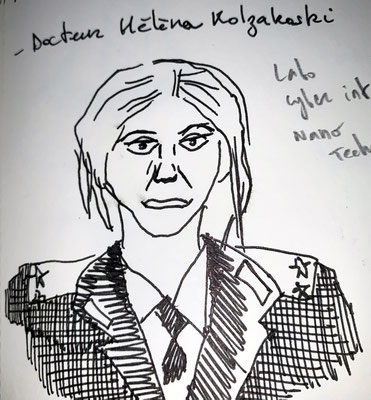 - Docteur Hélèna Kolzakoski
Labo
cyber int
Nano
Tech